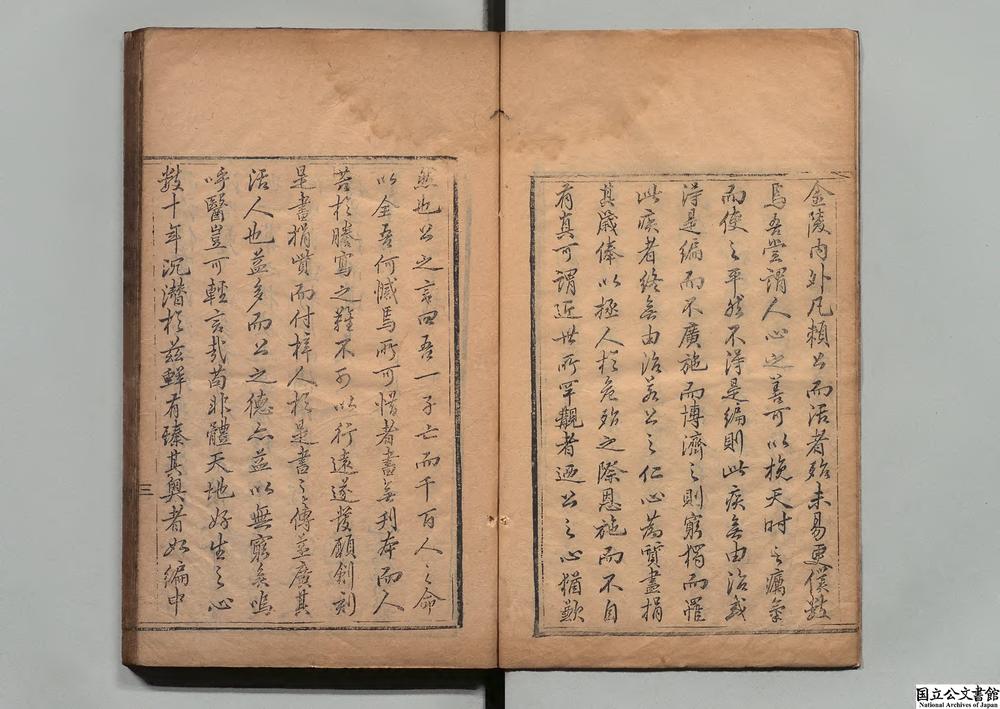 金陵內外凡賴公而活者殆未易更僕數
焉吾嘗謂人心之善可以挽天時之癘氣
而使之平然不淂是編則此疾無由治或
淂是編而不廣施而博濟之則窮獨而罹
此疾者終無由治若公之仁心為質盡捐
其歲俸以極人於危殆之際恩施而不自
有真可謂近世所罕覯者迺公之心猶歉
然也公之言曰吾一子亡而千百人之命
以全吾何憾焉所可惜者書無刊本而人
苦於謄寫之難不可以行遠遂發願剞刻
是書捐貲而付梓人於是書之傳益廣其
活人也益多而公之德亦益以無窮矣嗚
呼醫豈可輕言哉苟非體天地好生之心
數十年沉潛於茲鮮有臻其奧者如編中
三
国立公文書館
National Archives of Japan